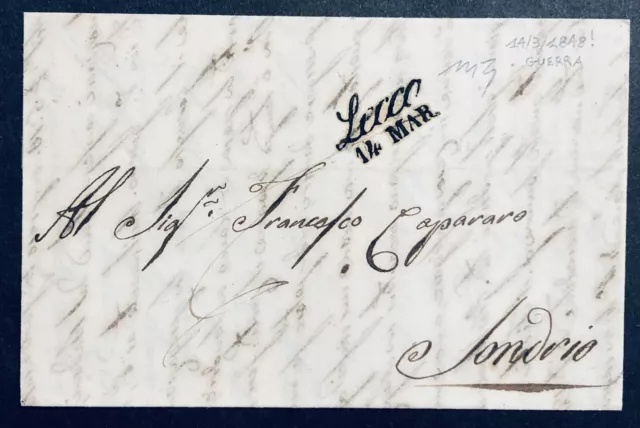 14/3/1848!
GUERRA
Lecco
14 MAR.
Al Sigr. Francesco Capararo
Sondrio